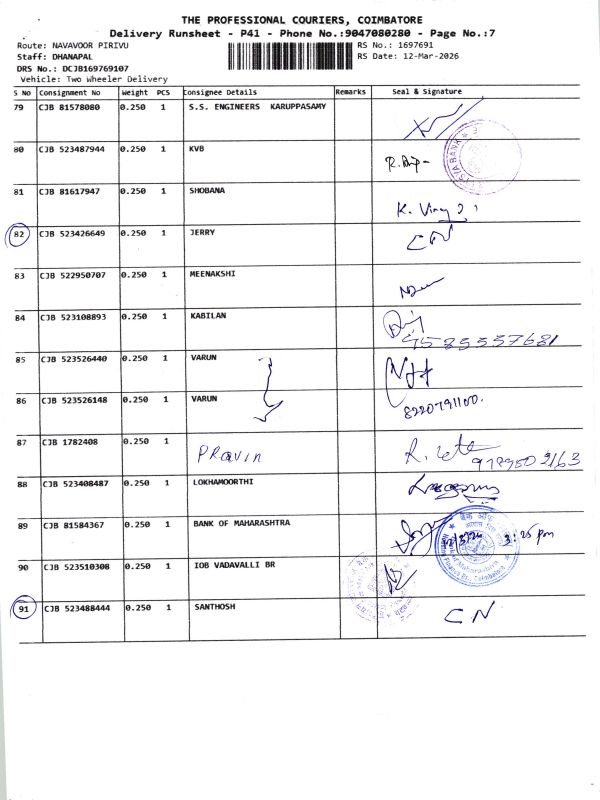 THE PROFESSIONAL COURIERS, COIMBATORE
Delivery Runsheet - P41 - Phone No.:9047080280 - Page No.:7
Route: NAVAVOOR PIRIVU
RS No.: 1697691
Staff: DHANAPAL
RS Date: 12-Mar-2026
DRS No.: DCJB169769107
Vehicle: Two Wheeler Delivery
S No Consignment No Weight PCS Consignee Details Remarks Seal & Signature
79 CJB 81578080 0.250 1 S.S. ENGINEERS KARUPPASAMY
80 CJB 523487944 0.250 1 KVB
81 CJB 81617947 0.250 1 SHOBANA K. Vinay
82 CJB 523426649 0.250 1 JERRY CN
83 CJB 522950707 0.250 1 MEENAKSHI
84 CJB 523108893 0.250 1 KABILAN
85 CJB 523526440 0.250 1 VARUN
86 CJB 523526148 0.250 1 VARUN 8220791100.
87 CJB 1782408 0.250 1 Pravin R.
88 CJB 523408487 0.250 1 LOKHAMOORTHI
89 CJB 81584367 0.250 1 BANK OF MAHARASHTRA 3:25 pm
90 CJB 523510308 0.250 1 IOB VADAVALLI BR
91 CJB 523488444 0.250 1 SANTHOSH CN